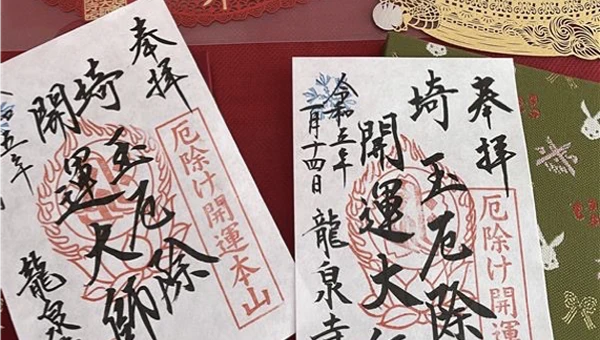 奉拝
厄除け開運本山
埼玉厄除
開運大師
五年
龍泉
奉拝
厄除け開運
埼玉厄除
開運大
令和五年
一月十四日
龍泉寺